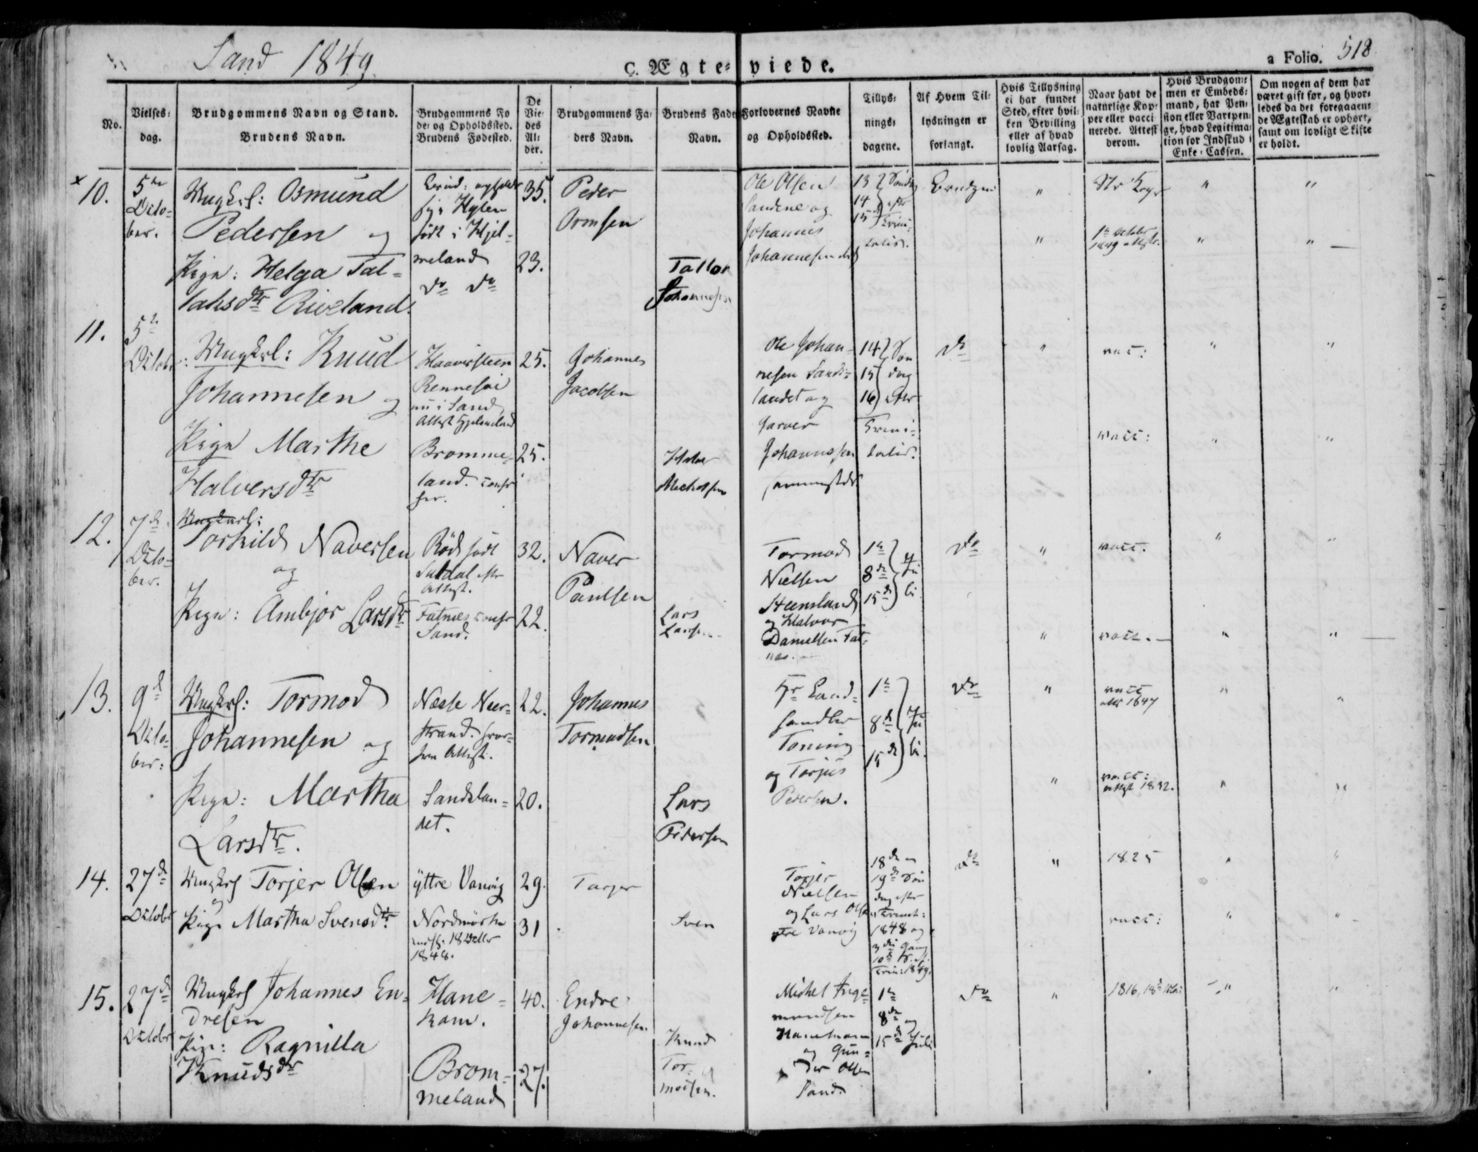 Sand 1849.
C. Ægteviede.
a Folio. 518
No.
Vielses-
dag.
Brudgommens Navn og Stand.
Brudens Navn.
Brudgommens Fø
de- og Opholdssted.
Brudens Fødested.
De
Vie-
des
Al-
der.
Brudgommens Fa-
ders Navn.
Brudens Faders
Navn.
Forlovernes Navne
og Opholdssted.
Tillys-
nings-
dagene.
Af Hvem Til-
lysningen er
forlangt.
Hvis Tillysning
ei har fundet
Sted, efter hvil-
ken Bevilling
eller af hvad
lovlig Aarsag.
Naar havt de
naturlige Kop-
per eller vacci
nerede. Attest
derom.
Hvis Brudgom-
men er Embeds-
mand, har Pen-
sion eller Vartpen-
ge, hvad Legitima
tion for Indskud i
Enke-Cassen.
Om nogen af dem har
været gift før, og hvor-
ledes da det foregaaende
Ægteskab er ophørt,
samt om lovligt Skifte
er holdt.
10.
5te
Octo-
ber.
Ungkrl: Osmund
Pedersen og
Pige: Helga Tal-
laksdtr Riveland.
Hylen
født i Hjel-
meland
do do
35.
23.
Peder
Ormsen
Tallak
Johannesen
Ole Olsen
Sandene og
Johannes
Johannesen
13
14
15
Søndag
efter
Trini-
tatis.
Brudgm
" "
1849 attest.
11.
5te
October
Ungkrl: Knud
Johannesen og
Pige Marthe
Halversdtr
Rennesøe
nu i Sand
Attest Hjelmeland
Bromme-
land. conf
her.
25.
25.
Johannes
Jacobsen
Halvor
Michelsen
Ole Johan-
nesen Sands-
landet og
Johannesen
sammesteds
14
15
16
Søn
dag
efter
Trini-
tatis.
do
vacc:
vacc:
12.
7de
Octo-
ber.
Ungkarl:
Torkild Naversen
og
Pige: Ambjør Larsdtr
Rød født
Suldal efter
Attest.
Fatnes conf
Sand.
32.
22.
Naver
Paulsen
Lars
Larsen
Tormod
Nielsen
Steensland
og Halvor
Danielsen Fat-
nes.
1te
8de
15de
Ju
li
do
vacc.
vacc.
13.
9de
Octo-
ber:
Ungkrl: Tormod
Johannesen og
Pige: Martha
Larsdtr.
Næsse Neer-
strand. hvor-
fra Attest.
Sandslan-
det.
22.
20.
Johannes
Tormodsen
Lars
Pedersen
Hr Land-
handler
Toning
og Torjus
Pedersen.
1te
8de
15de
Ju
li
do
vacc
1847
vacc:
attest 1832.
14.
27de
October
Ungkrl Torjer Olsen
og
Pige Martha Svensdtr
yttre Vanvig
Nordmørke
1848.
29.
31
Torjer
Sven
Torjer
Nielsen
og Lars Olsen
Vanvig
18de og
19de Søn
dag efter
Trinit:
1848 og
3die Gang
Trin: 1849.
do
1825
vacc:
15.
27de
October
Ungkrl Johannes En-
dresen
Pige: Ragnilla
Knudsdtr
Hane-
kam.
Brom-
meland
40.
27.
Endre
Johannesen
Knud
Tor-
modsen.
Michel Inge-
mundsen
Hanekam
og Gun-
der Olsen
Sand.
1te
8de og
15de Juli
do
1816,